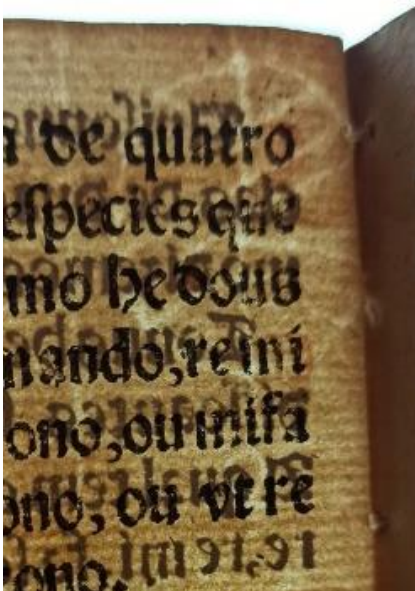 a de quatro
especies que
mo he dous
nando, re mi
ono, ou mi fa
ono, ou vt re
ono.